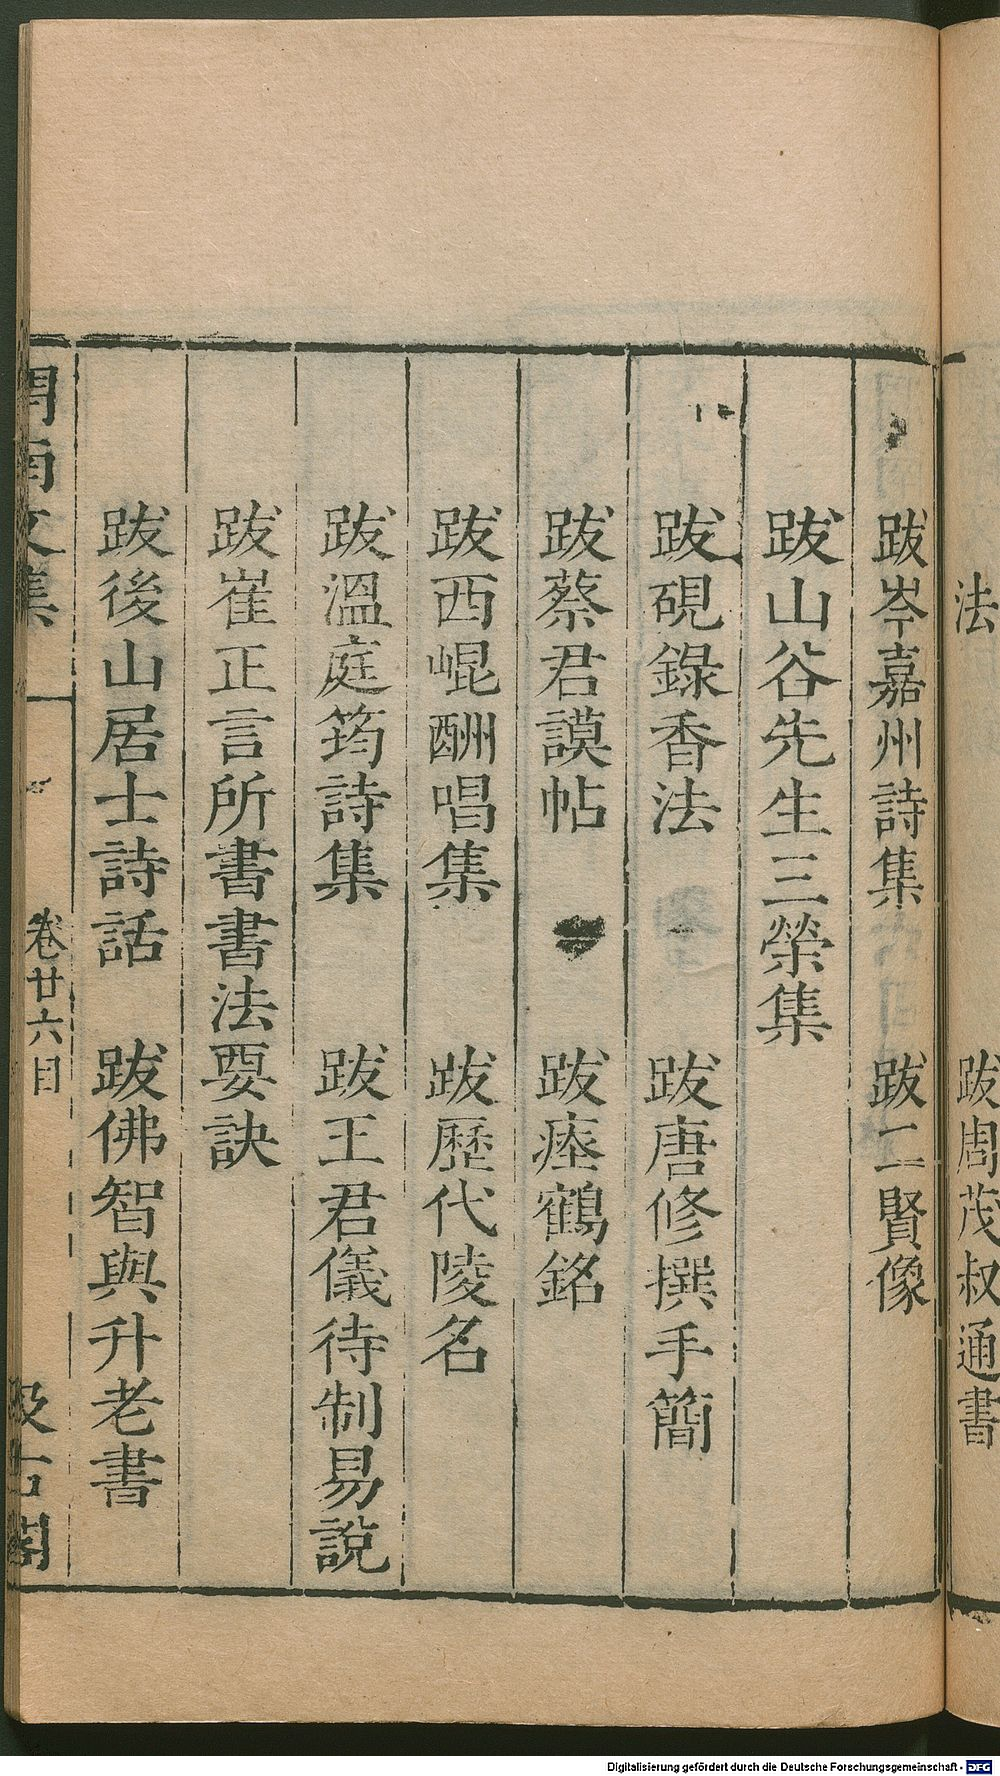 法
跋周茂叔通書
跋岑嘉州詩集 跋二賢像
跋山谷先生三榮集
跋硯錄香法 跋唐修撰手簡
跋蔡君謨帖 跋瘞鶴銘
跋西崐酬唱集 跋歷代陵名
跋溫庭筠詩集 跋王君儀待制易說
跋崔正言所書書法要訣
跋後山居士詩話 跋佛智與升老書
文集
卷廿六目
汲古閣
Digitalisierung gefördert durch die Deutsche Forschungsgemeinschaft - DFG